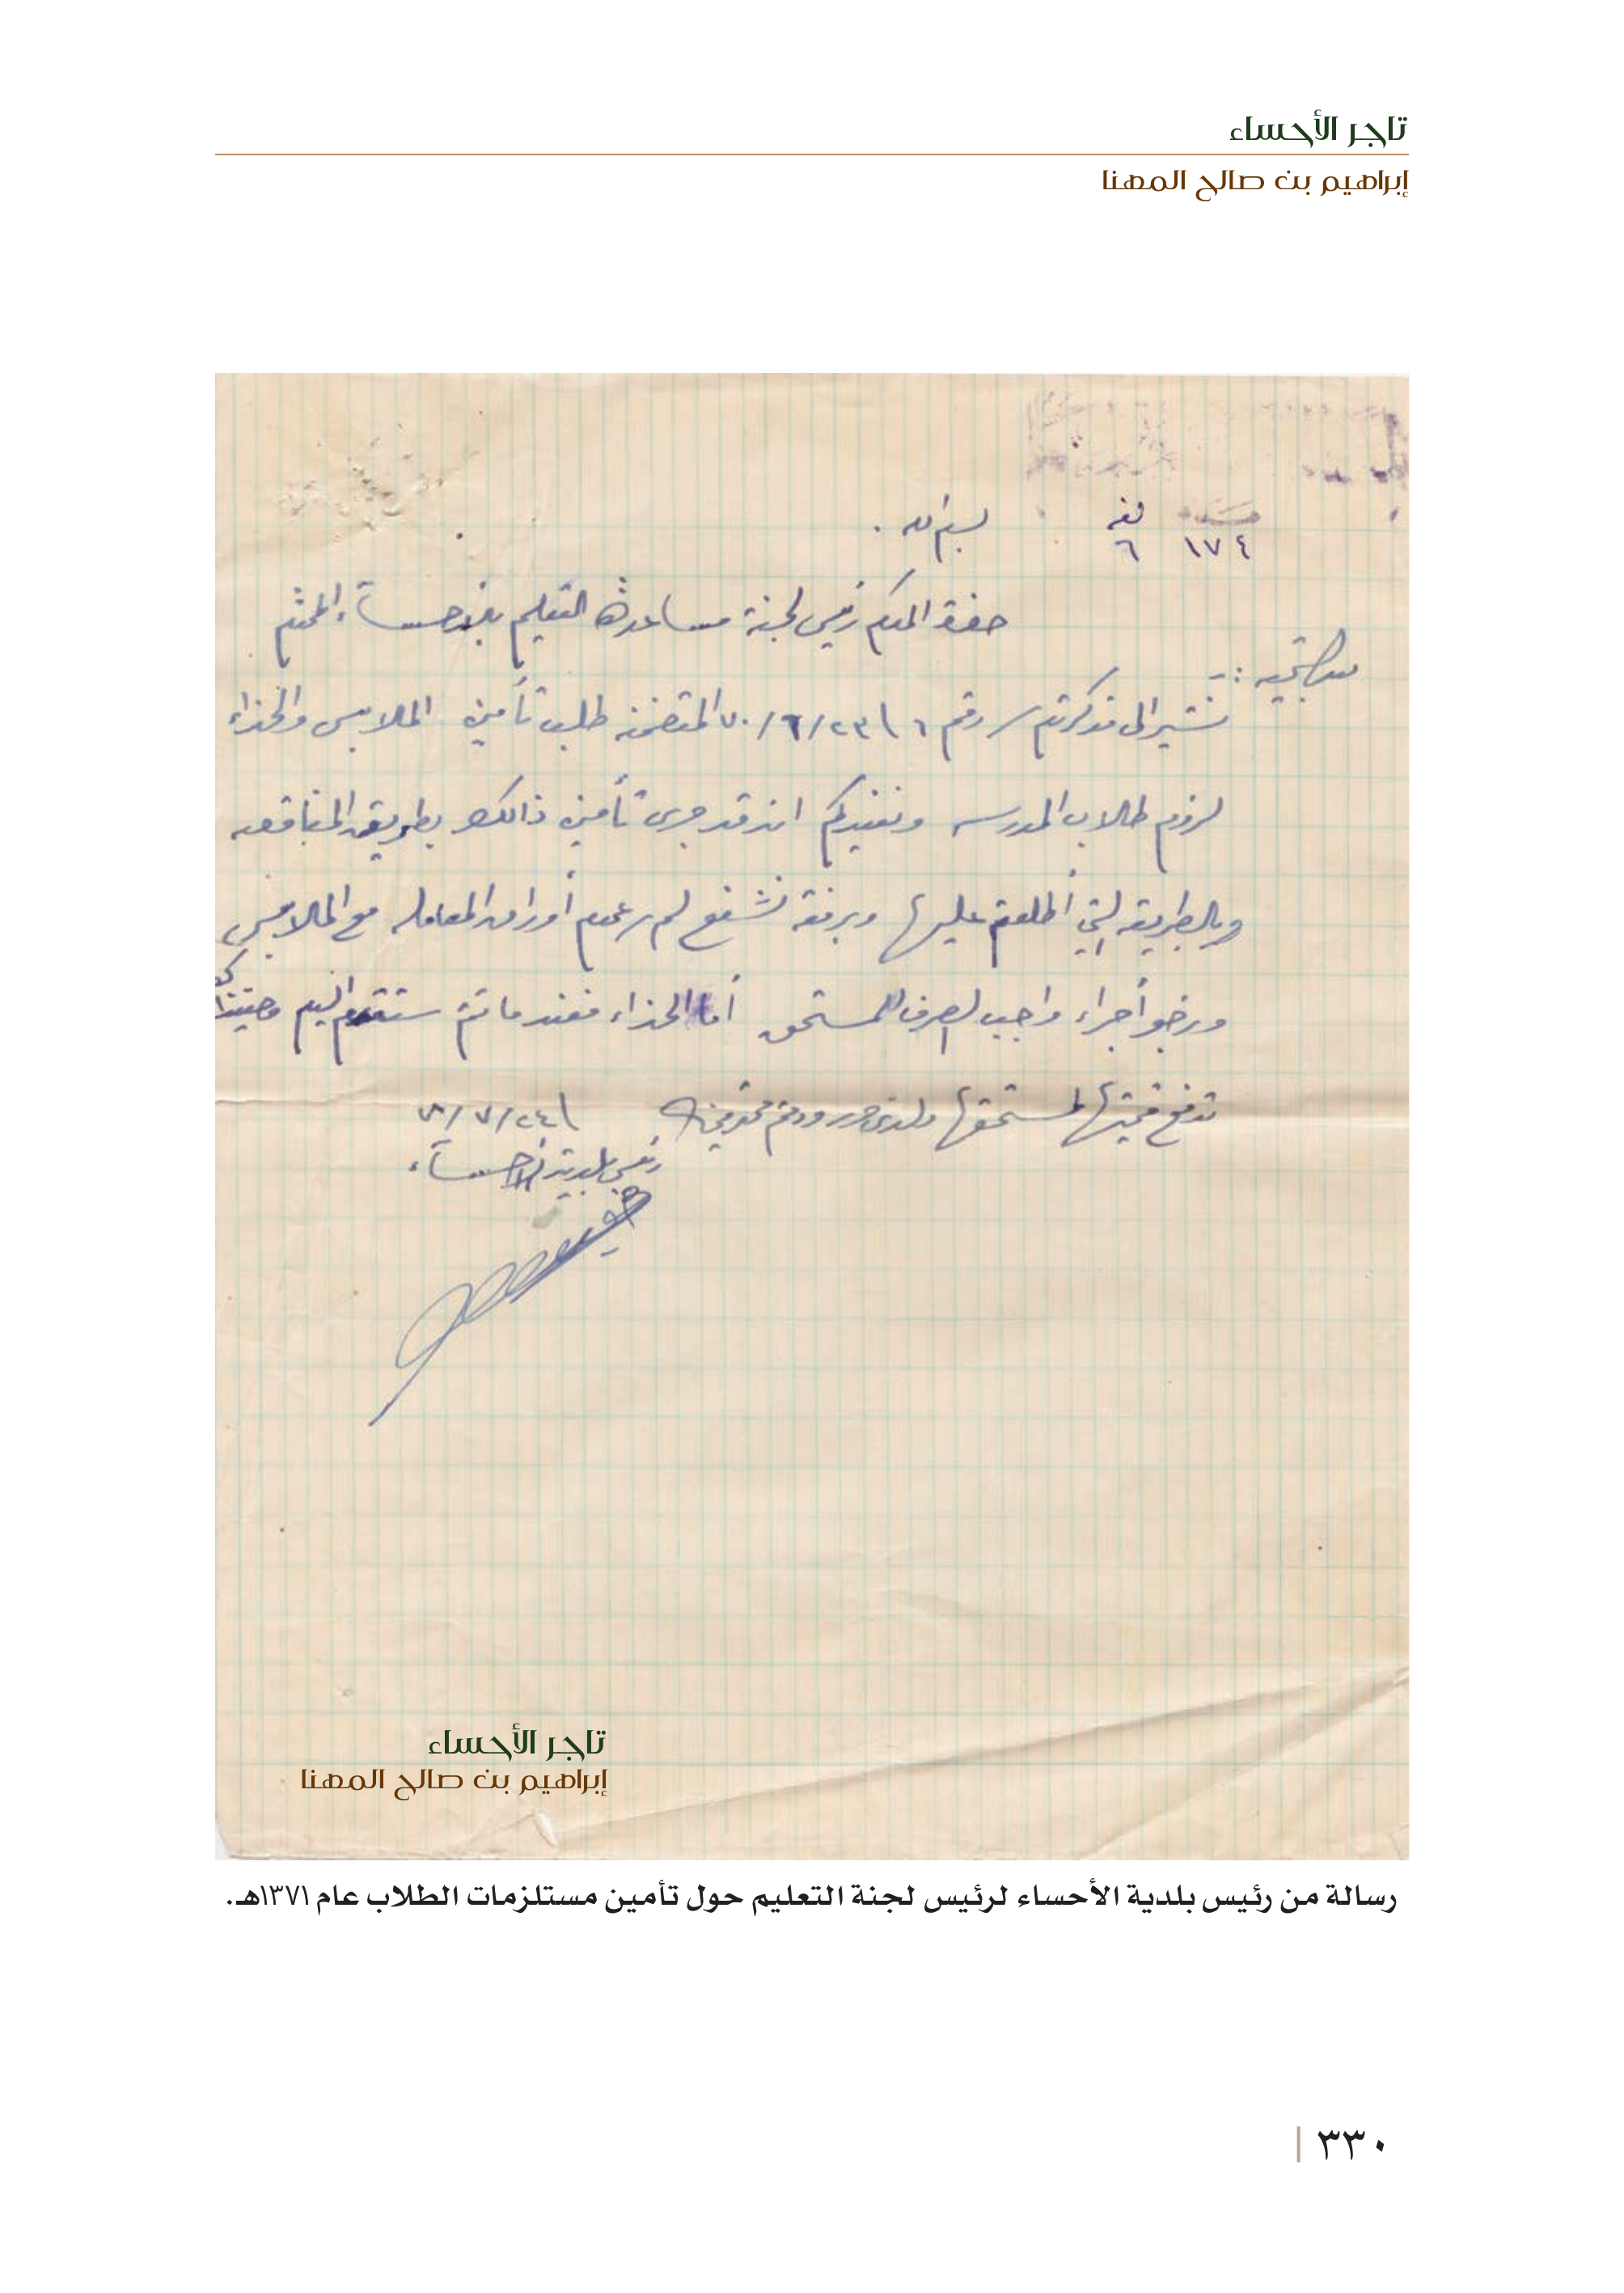 تاجر الأحساء
إبراهيم بن صالح المهنا
لفه
١٧٤ ٦
بسم الله .
حضرة المكرم رئيس لجنة مساعدة التعليم بالأحساء المحترم
بعد التحيه :-
نشير الى مذكرتكم رقم ٦ \ ٢٣/٦/٧٠ المتضمنه طلب تأمين الملابس والحذاء
لزوم طلاب المدرسه ونفيدكم انه قد جرى تأمين ذالك بطريقة المناقصه
وبالطريقه التي أطلعتم عليها وبرفقه نشفع لكم عموم أوراق المعامله مع الملابس
ونرجو أجراء واجب الصرف للمستحق أما الحذاء فعند ما تتم ستقدم اليكم وحينذاك
تدفع قيمتها لمستحقها ولذى حرر ودمتم محترمين
رئيس بلدية الأحساء
تاجر الأحساء
إبراهيم بن صالح المهنا
رسالة من رئيس بلدية الأحساء لرئيس لجنة التعليم حول تأمين مستلزمات الطلاب عام ١٣٧١هـ.
٣٣٠